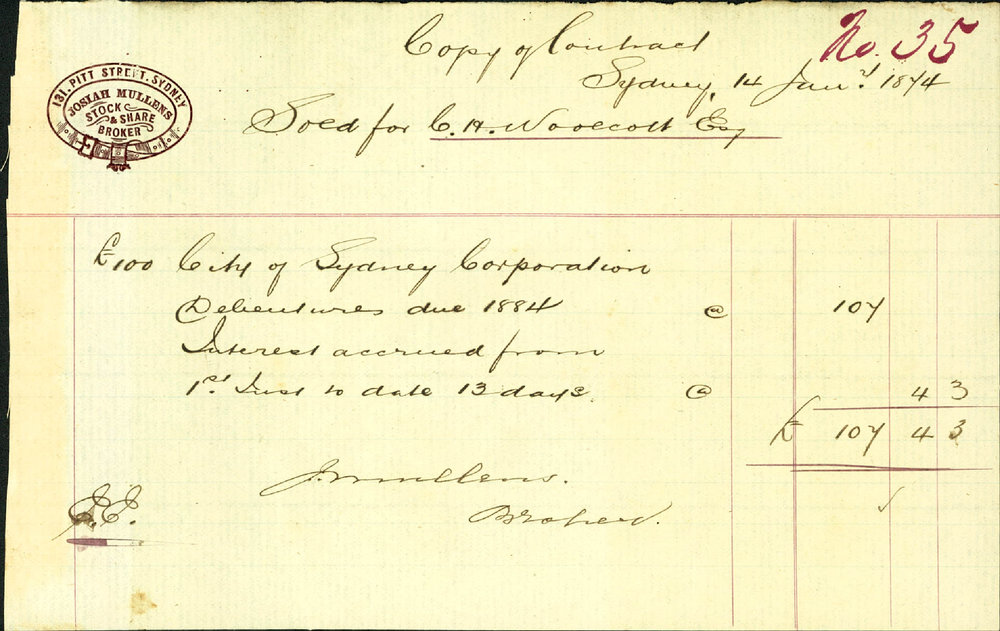 Copy of Contract
No. 35
Sydney, 14 Jany. 1874
131, PITT STREET, SYDNEY
JOSIAH MULLENS
STOCK
& SHARE
BROKER
Sold for C. H. Woolcott Esq
£100 City of Sydney Corporation
Debentures due 1884 @ 107
Interest accrued from
1st Inst to date 13 days. @ 4 3
£ 107 4 3
J. Mullens.
Broker.
E.E.